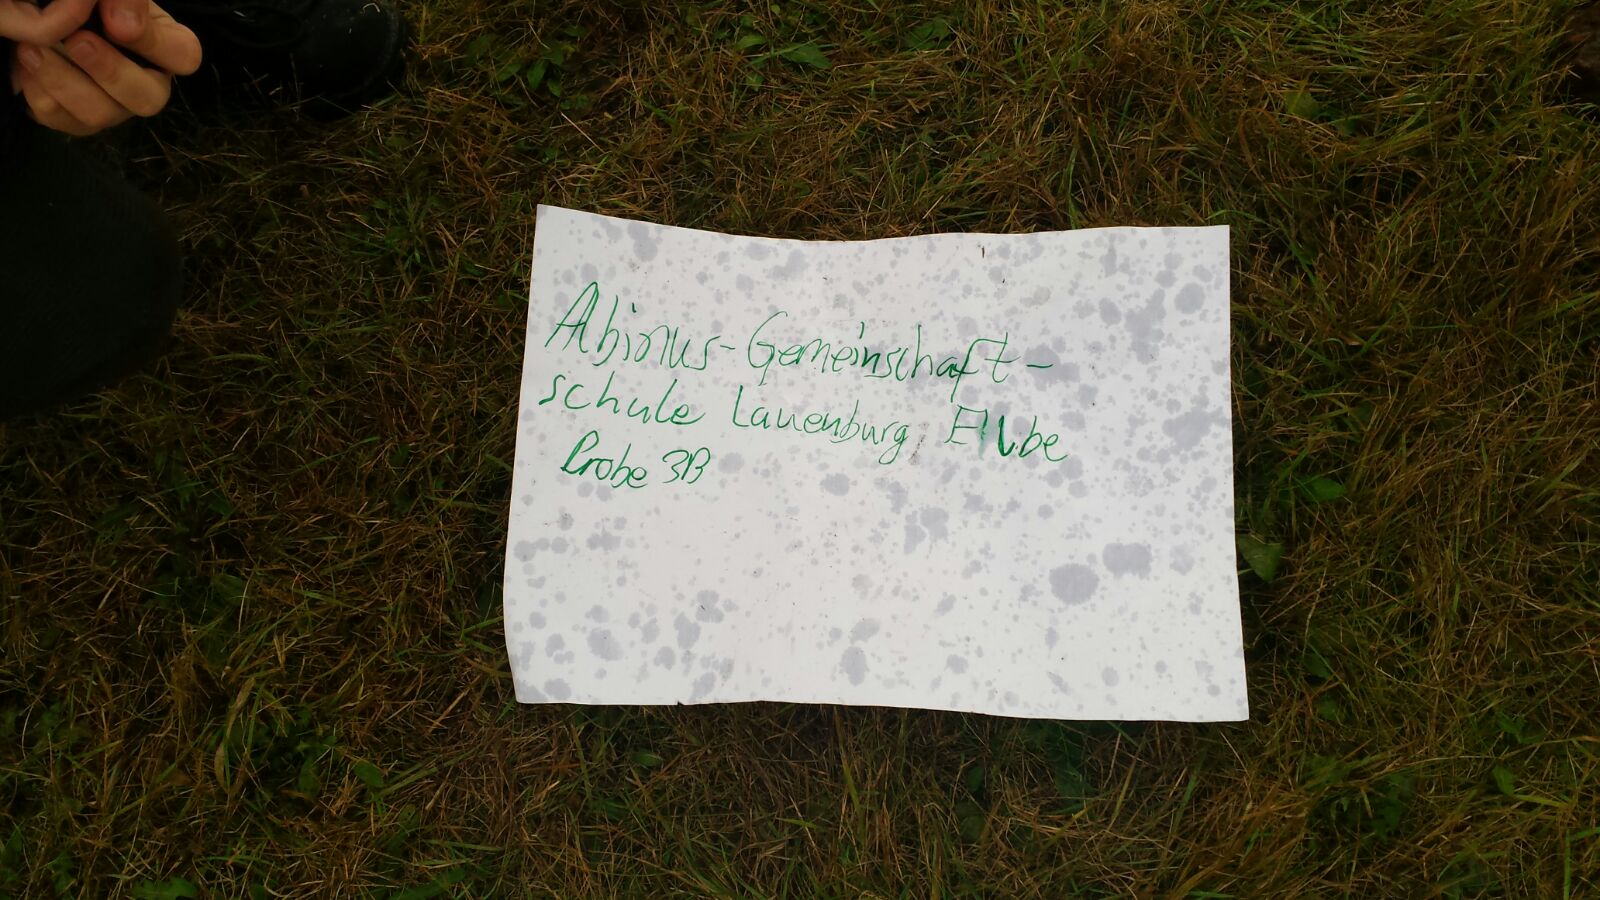 Albinus-Gemeinschaft-
schule Lauenburg, Elbe
Probe 3B